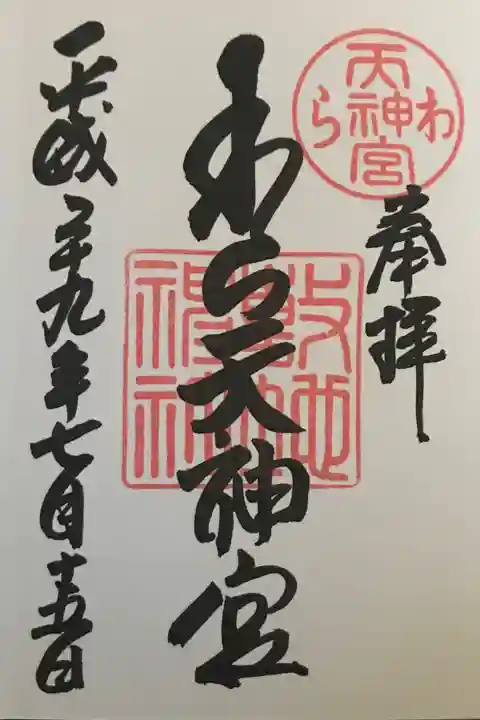 奉拝
わ
天神宮
ら
わら天神宮
敷地
平成二十九年七月十五日